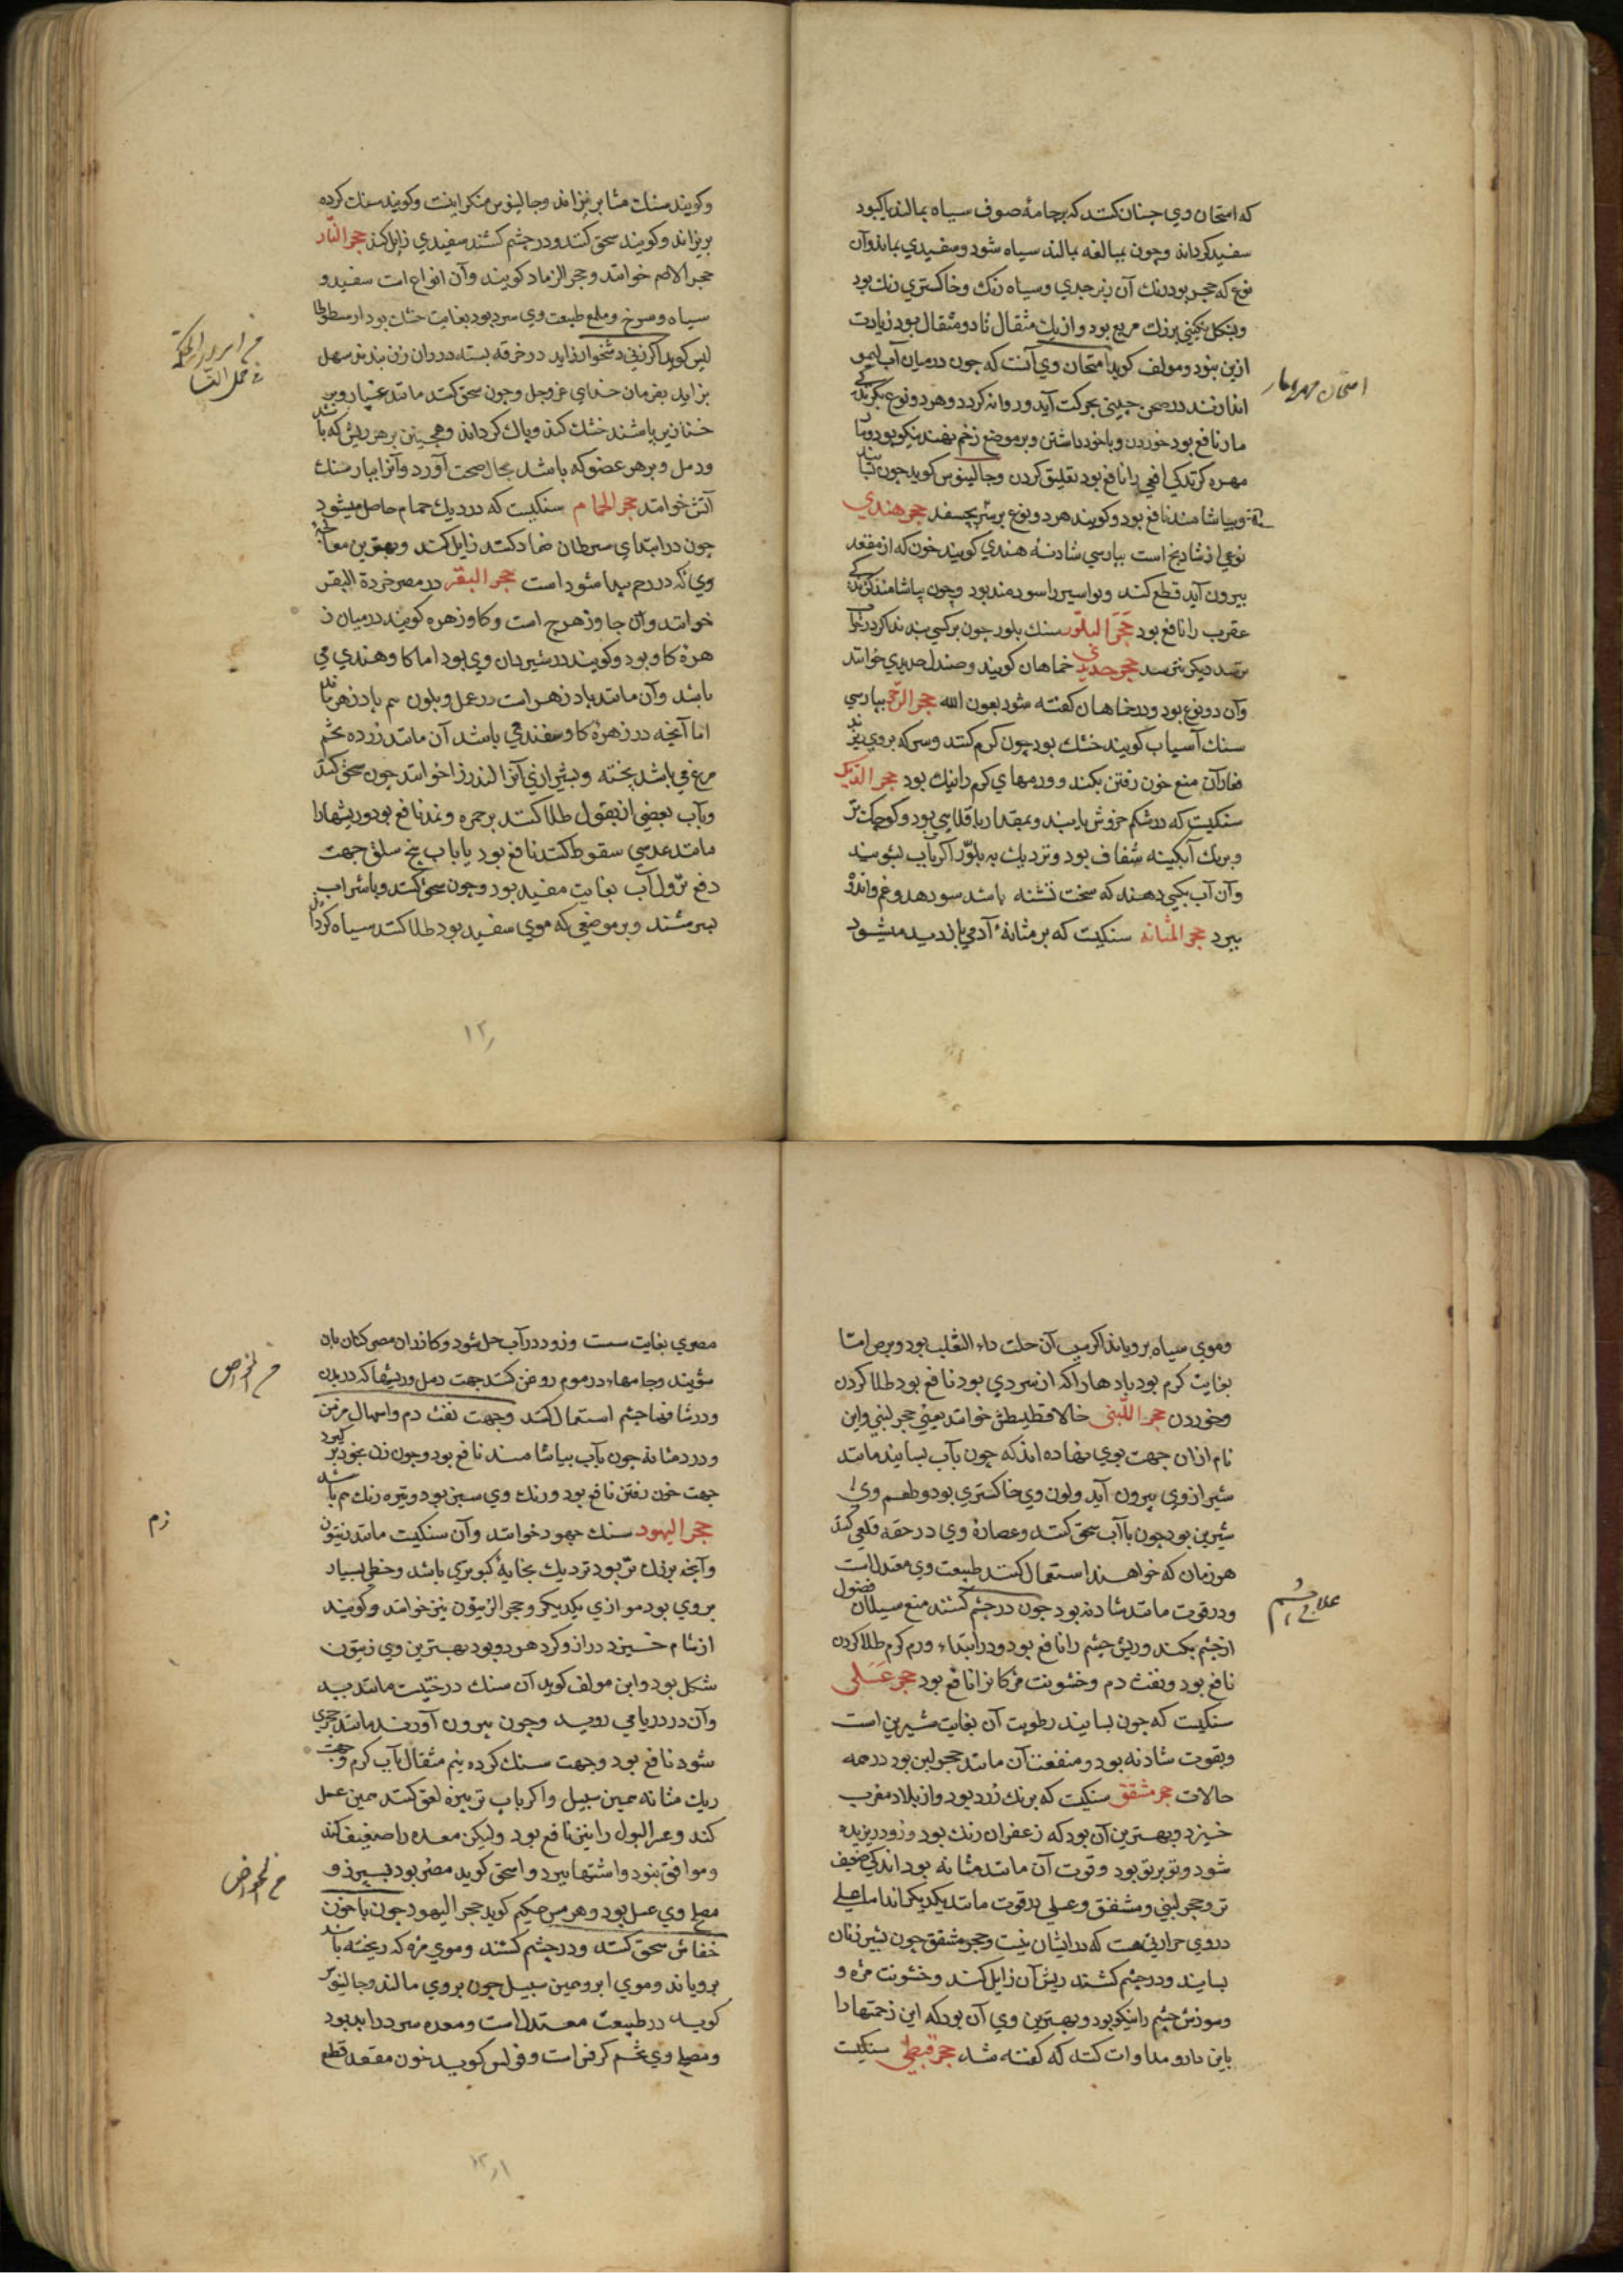 که امتحان وي چنان کنند که بر جامهٔ صوف سیاه بمالند یا کبود
سفید کرداند وچون بمبالغه بمالند سیاه شود وسفیدي بماند وآن
نوع که حجر بود رنك آن زبرجدي وسیاه رنك وخاکستري رنك بود
وبشکل نکیني بزرك مربع بود واز یك مثقال تا دو مثقال بود زیادت
ازین نبود ومولف کوید امتحان وي آنست که چون در میان آب لیمو
اندازند در صحن چیني بحرکت آید وروانه کردد وهر دو نوع کزندکي
مار نافع بود خوردن وبا خود داشتن وبر موضع زخم نهند نیکو بود
مهره کزیدکي افعي را نافع بود تعلیق کردن وجالینوس کوید چون
وبیاشامند نافع بود وکویند هر دو نوع بر بچسفد حجر هندي
نوعي از شادنج است بپارسي شادنهٔ هندي کویند خون که از مقعد
بیرون آید قطع کند وبواسیر را سودمند بود وچون بیاشامند کزندکي
عقرب را نافع بود حجر البلور سنك بلور چون بر کسي بندند که در خواب
ترسد دیکر نترسد حجر حدیدي خماهان کویند وصندل حدیدي خوانند
وآن دو نوع بود ودر خماهان کفته شود بعون الله حجر الرحی بپارسي
سنك آسیاب کویند خشك بود چون کرم کنند وسرکه بر وي ریزند
بخار آن منع خون رفتن بکند وورمهاي کرم را نیك بود حجر الدیك
سنکیست که در شکم خروش یابند وبمقدار باقلایي بود وکوچك تر
وبرنك آبکینه شفاف بود ونزدیك به بلور اکر بآب بشویند
وآن آب بکسي دهند که سخت تشنه باشد سود دهد وغم واندوه
ببرد حجر المثانه سنکیست که بر مثانهٔ آدمي پدید میشود
امتحان مهره مار
وکویند سنك مثانه بریزاند وجالینوس منکر اینست وکویند سنك کرده
بریزاند وکویند سحق کنند ودر چشم کشند سفیدي زایل کند حجر النار
حجر الاصم خوانند وحجر الزناد کویند وآن انواع است سفید و
سیاه وسرخ وملمع طبیعت وي سرد بود بغایت خشك بود ارسطوطا
لیس کوید اکر زني دشخوار زاید در خرقه بسته در ران زن بندند سهل
بزاید بفرمان خداي عز وجل وچون سحق کنند مانند غبار وبر
خنازیر باشند خشك کند وپاك کرداند وهمچنین بر هر ریش که باشد
ودمل وبر هر عضو که باشد بحال صحت آورد وآنرا بپارسي سنك
آتش خوانند حجر الحمام سنکیست که در دیك حمام حاصل میشود
چون در ابتداي سرطان ضماد کنند زایل کند وبهترین معالجهٔ
وي که در رحم پیدا شود است حجر البقر در مصر خرزة البقر
خوانند وآن جاوزهرج است وکاوزهره کویند در میان ز
هره کاو بود وکویند در شیردان وي بود اما کاو هندي مي
باشد وآن مانند پادزهر است در عمل وبلون هم پادزهر ماند
اما آنچه در زهرهٔ کاو سفند مي باشد آن مانند زرده تخم
مرغ مي باشد پخته وبشیرازي آنرا اندرزا خوانند چون سحق کنند
وبآب بعضي از بقول طلا کنند بر حمره ونمله نافع بود وریشها را
مانند عدسي سقوط کنند نافع بود یا باب بیخ سلق جهت
دفع نزول آب بغایت مفید بود وچون سحق کنند وباشراب
بسرشند وبر موضعي که موي سفید بود طلا کنند سیاه کرداند
في عمل النسا
۱۲۰
وموي سیاه برویاند اکر سبب آن علت داء الثعلب بود وبرص اما
بغایت کرم بود بادها را که از سردي بود نافع بود طلا کردن
وخوردن حجر اللبنی خالاقطیطش خوانند یعني حجر لبني واین
نام ازان جهت بوي نهاده اند که چون بآب بسایند مانند
شیر از وي بیرون آید ولون وي خاکستري بود وطعم وي
شیرین بود چون باآب سحق کنند وعصارهٔ وي در حقه قلعي کنند
هر زمان که خواهند استعمال کنند طبیعت وي معتدل است
ودر قوت مانند شادنه بود چون در چشم کشند منع سیلان فضول
از چشم بکند وریش چشم را نافع بود ودر ابتداء ورم کرم طلا کردن
نافع بود ونفث دم وخشونت مژکانرا نافع بود حجر عسلی
سنکیست که چون بسایند رطوبت آن بغایت شیرین است
وبقوت شادنه بود ومنفعت آن مانند حجر لبن بود در همه
حالات حجر مشقق سنکیست که برنك زرد بود واز بلاد مغرب
خیزد وبهترین آن بود که زعفران رنك بود وزود ریزیده
شود وتو برتو بود وقوت آن مانند شادنه بود اندکي ضعیف
تر وحجر لبني ومشقق وعسلي در قوت مانند یکدیکر اند اما عسلي
در وي حرارتي هست که در ایشان نیست وحجر مشقق چون بشیر زنان
بسایند ودر چشم کشند ریش آن زایل کند وخشونت مژه و
وسوزش چشم را نیکو بود وبهترین وي آن بود که این زحمتها را
باین دارو مداوات کنند که کفته شد حجر قبطی سنکیست
علاج چشم
مصري بغایت سست وزود در آب حل شود وکازران مصر کتان بدان
شویند وجامهاء در موم روغن کنند جهت دمل وریشها که در بدن
ودر شافها چشم استعمال کنند وجهت نفث دم واسهال مزمن
ودرد مثانه چون بآب بیاشامند نافع بود وچون زن بخود برکیرد
جهت خون رفتن نافع بود ورنك وي سبز بود وتیره رنك هم باشد
حجر الیهود سنك جهود خوانند وآن سنکیست مانند زیتون
وآنچه بزرك تر بود نزدیك بخایهٔ کبوتري باشد وخطي بسیار
بر وي بود موازي یکدیکر وحجر الزیتون نیز خوانند وکویند
از شام خیزد دراز وکرد هر دو بود بهترین وي زیتون
شکل بود واین مولف کوید آن سنك درختیست مانند بید
وآن در دریا مي روید وچون بیرون آورند مانند حجري
شود نافع بود وجهت سنك کرده نیم مثقال بآب کرم وجهت
ریك مثانه همین سبیل واکر باب تربیزه لعق کنند همین عمل
کند وعسر البول را نیز نافع بود ولیکن معده را ضعیف کند
وموافق نبود واشتها ببرد واسحق کوید مضر بود بسپرز و
مصلح وي عسل بود وهرمس حکیم کوید حجر الیهود چون باخون
خفاش سحق کنند ودر چشم کشند وموي مژه که ریخته باشد
برویاند وموي ابرو همین سبیل چون بر وي مالند وجالینوس
کوید در طبیعت معتدل است ومعده سرد را بد بود
ومصلح وي تخم کرفس است وفولس کوید خون مقعد قطع
م الخواص
م الخواص
۱۲۱